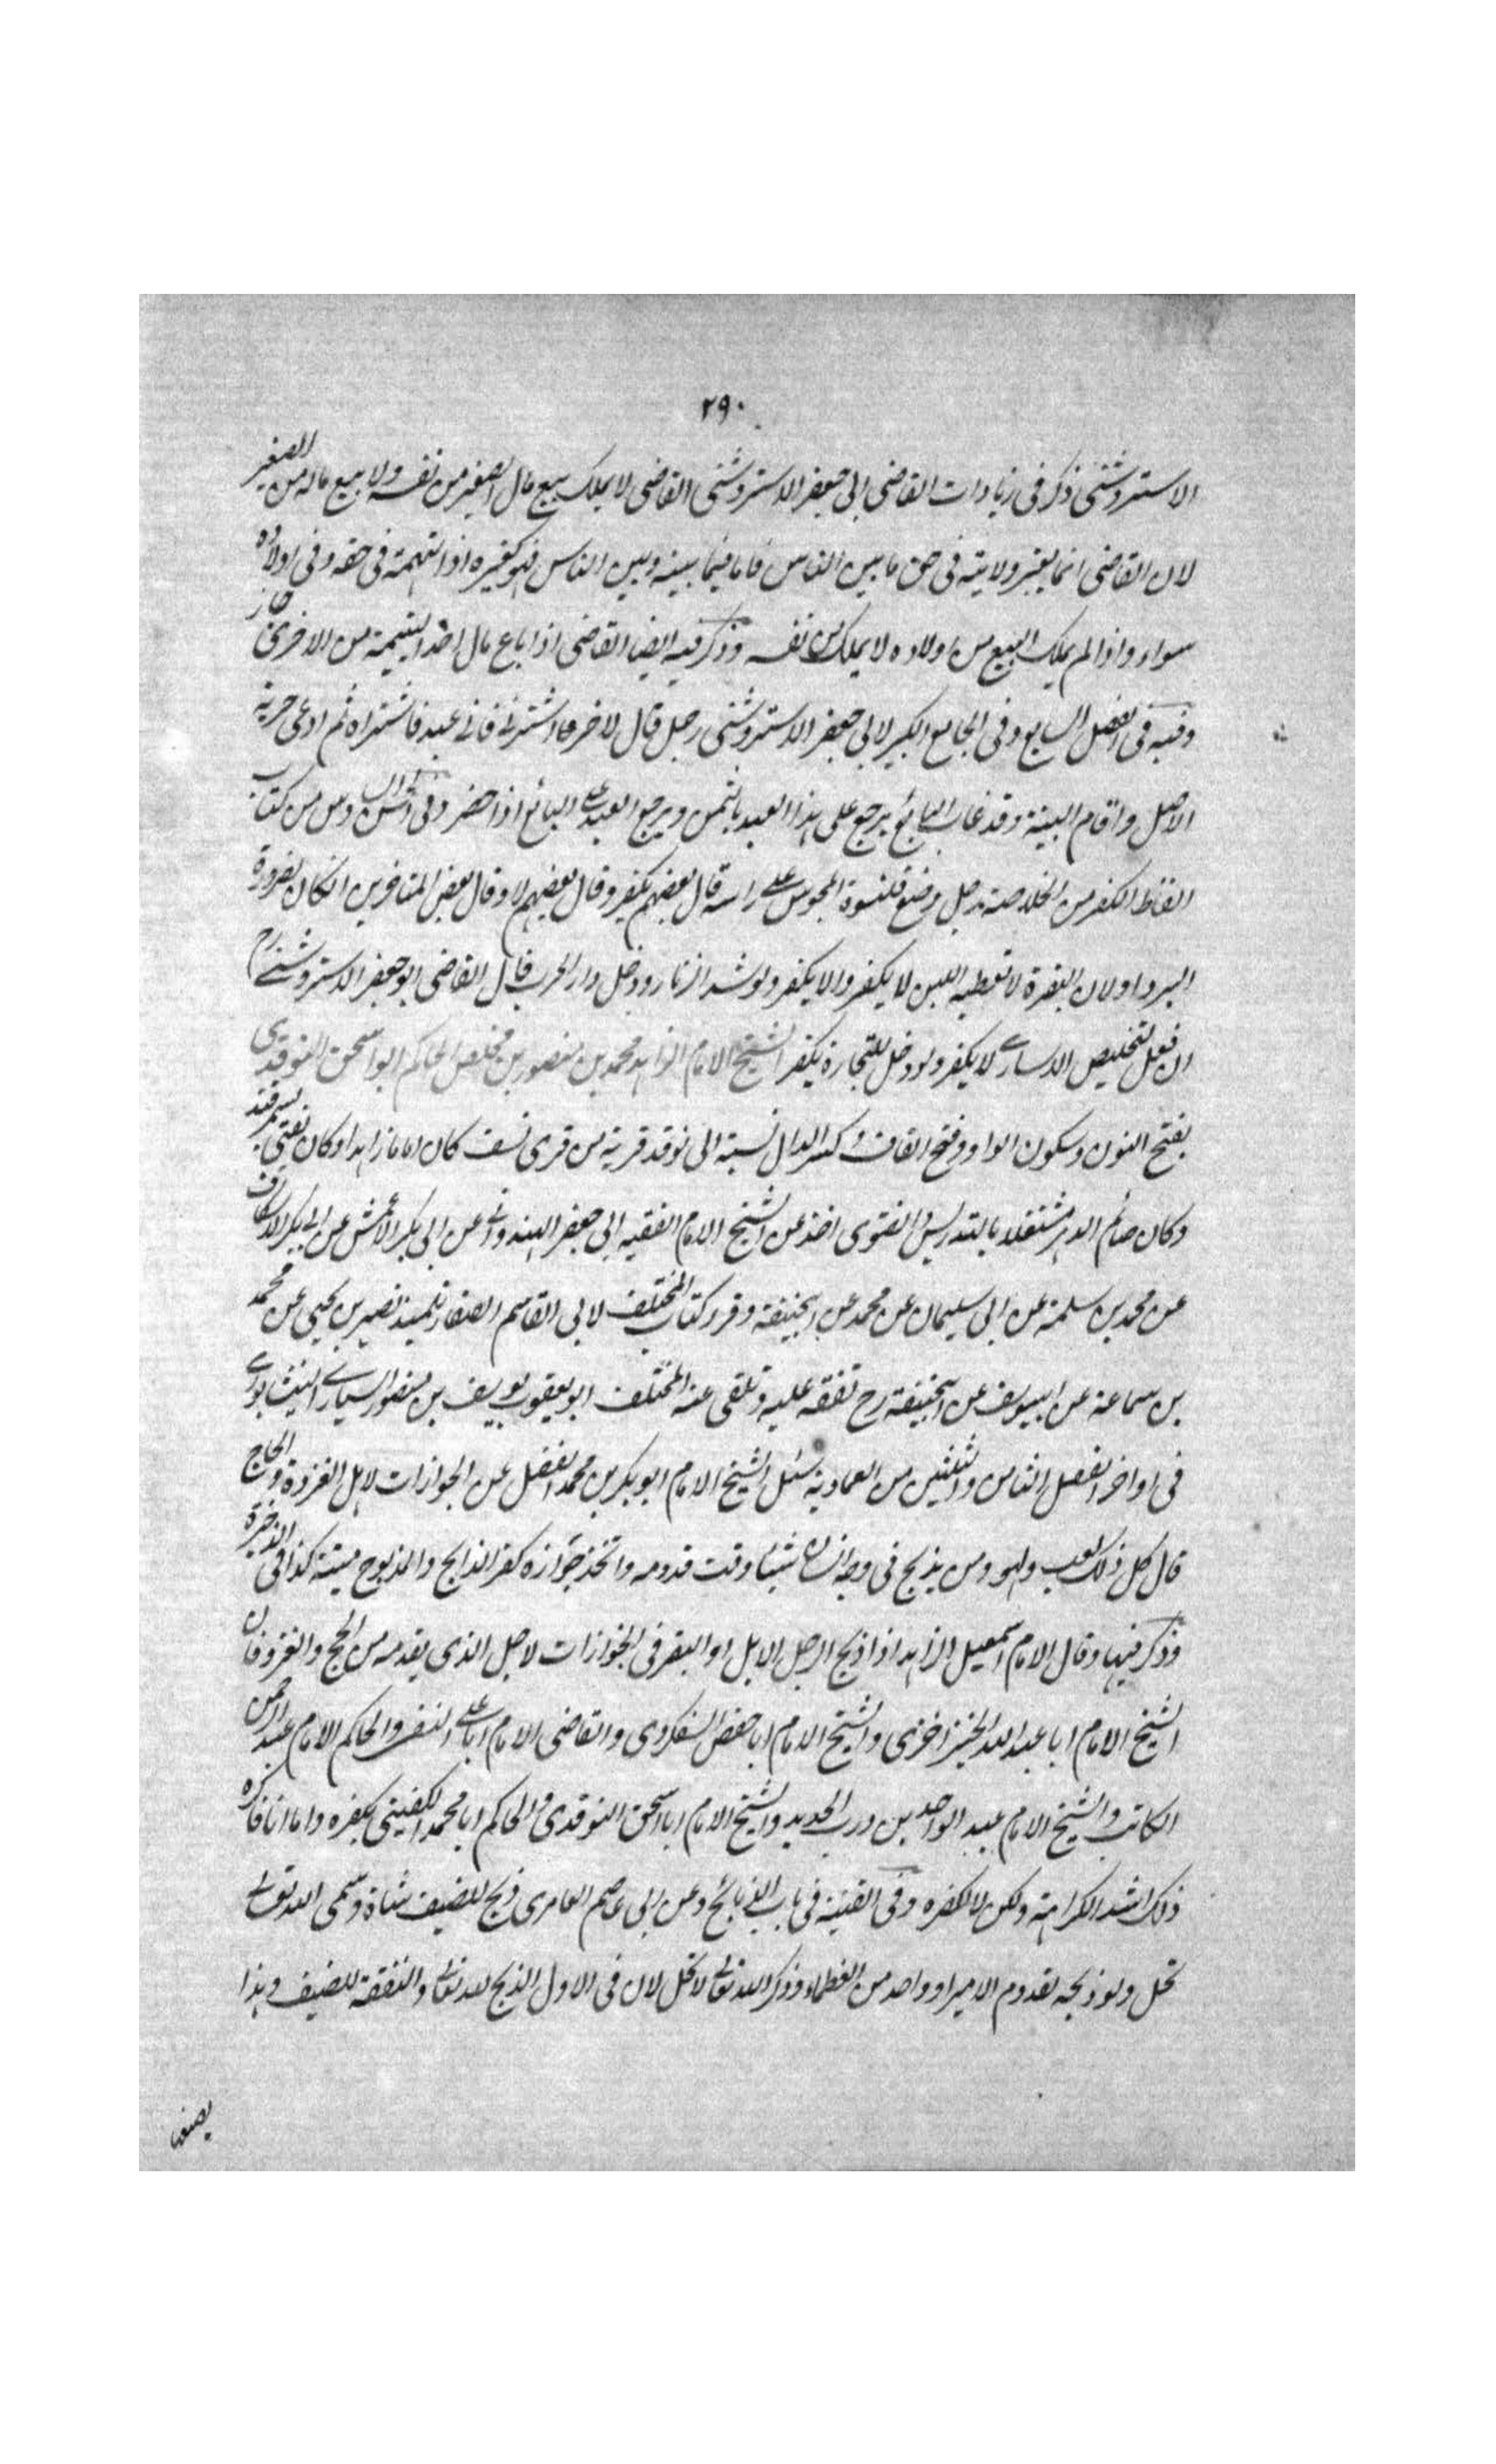 ۲۹۰
الاستروشنى ذكر فى زيادات القاضى ابى جعفر الاستروشنى القاضى لا يملك بيع مال الصغير من نفسه ولا بيع ماله من الصغير
لان القاضى انما يعتبر ولايته فى حق ما بين الناس فاما فيما بينه وبين الناس فهو كغيره اذ التهمة فى حقه وفى اولاده
سواء واذا لم يملك البيع من اولاده لا يملك من نفسه وذكر فيه ايضا القاضى اذا باع مال احد اليتيمة من الاخرى جاز
وفيه فى الفصل السابع وفى الجامع الكبير لابى جعفر الاستروشنى رجل قال لاخر اشترنى فانى عبد فاشتراه ثم ادعى حرية
الاصل واقام البينة وقد غاب البائع يرجع على هذا العبد بالثمن ويرجع العبد على البائع اذا حضر وفى من كتاب
الفاظ الكفر من الخلاصة رجل وضع قلنسوة المجوس على راسه قال بعضهم يكفر وقال بعضهم لا وقال بعض المتاخرين انكان لضرورة
البرد او لان البقرة لا تعطيه اللبن لا يكفر والا يكفر ولو شد الزنار ودخل دار الحرب قال القاضى ابو جعفر الاستروشنى رح
ان فعل لتخليص الاسارى لا يكفر ولو دخل للتجارة يكفر الشيخ الامام الزاهد محمد بن منصور بن مخلص الحاكم ابو اسحق النوقدى
بفتح النون وسكون الواو وفتح القاف وكسر الدال نسبة الى نوقد قرية من قرى نسف كان اماما زاهدا وكان يفتى بسمرقند
وكان صائم الدهر مشتغلا بالتدريس والفتوى اخذ عن الشيخ الامام الفقيه ابى جعفر الهندوانى عن ابى بكر الاعمش عن ابى بكر الاسكاف
عن محمد بن سلمة عن ابى سليمان عن محمد عن ابيحنيفة وقرء كتاب المختلف لابى القاسم الصفار تلميذ نصير بن يحيى عن محمد
بن سماعة عن ابييوسف عن ابيحنيفة رح تفقه عليه وتلقى عنه المختلف ابو يعقوب يوسف بن منصور السيارى النيشابورى
فى اواخر الفصل الثامن والثلثين من العمادية سئل الشيخ الامام ابو بكر بن محمد الفضل عن الجوازات لاهل الغزوة والحاج
قال كل ذلك لعب ولهو ومن يذبح فى وجه انسان شيئا وقت قدومه واتخذ جوازه كفر الذابح والمذبوح ميتة كذا فى الذخيرة
وذكر فيها وقال الامام اسمعيل الزاهد اذا ذبح الرجل الابل او البقر فى الجوازات لاجل الذى يقدمه من الحج والغزو فان
الشيخ الامام ابا عبد الله الخيزاخزى والشيخ الامام ابا حفص السفكردى والقاضى الامام ابا على النسفى والحاكم الامام عبد الرحمن
الكاتب والشيخ الامام عبد الواحد بن درب الحديد والشيخ الامام ابا اسحق النوقدى والحاكم ابا محمد الكفينى يكفره واما انا فاكره
ذلك اشد الكراهة ولكن لا اكفره وفى القنية فى باب الذبائح وعن ابى عاصم العامرى ذبح للضيف شاة وسمى الله تعالى
تحل ولو ذبحه لقدوم الامير او واحد من العظماء وذكر الله تعالى لا تحل لان فى الاول الذبح لله تعالى والنفقة للضيف وهذا